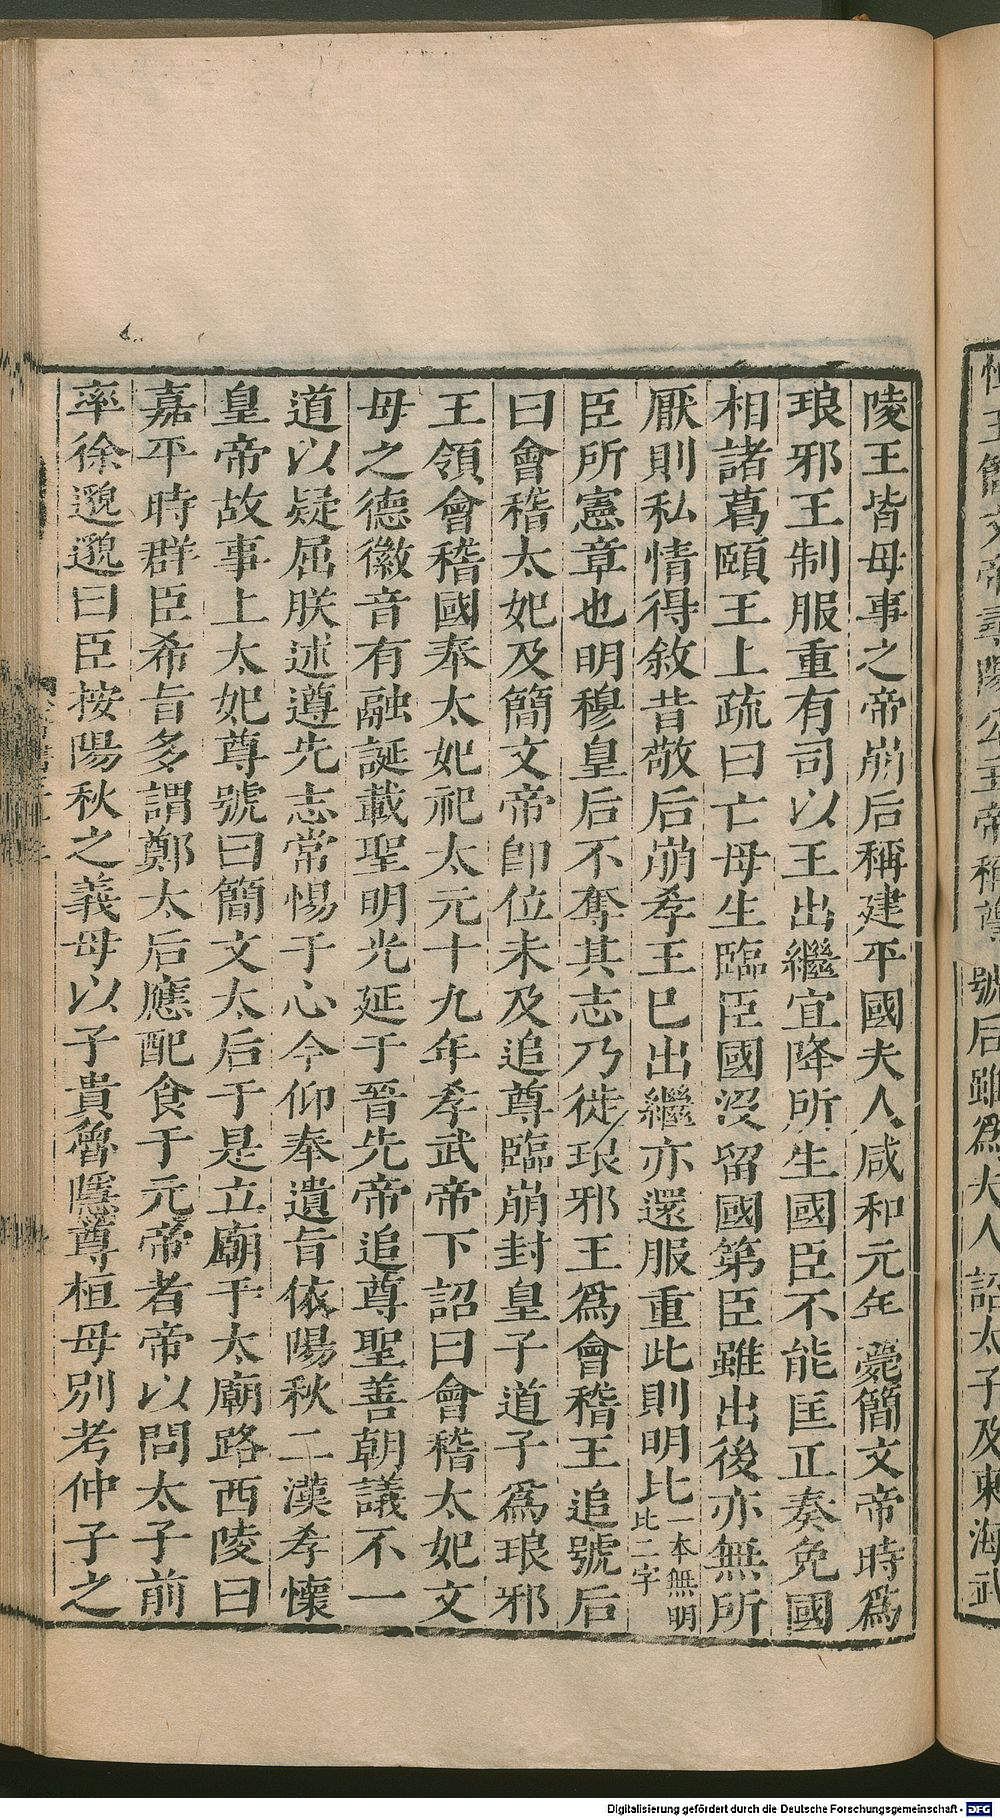 陵王皆母事之帝崩后稱建平國夫人咸和元年薨簡文帝時爲
琅邪王制服重有司以王出繼宜降所生國臣不能匡正奏免國
相諸葛頤王上疏曰亡母生臨臣國沒留國第臣雖出後亦無所
厭則私情得敘昔敬后崩孝王已出繼亦還服重此則明比一本無明比二字
臣所憲章也明穆皇后不奪其志乃徙琅邪王爲會稽王追號后
曰會稽太妃及簡文帝卽位未及追尊臨崩封皇子道子爲琅邪
王領會稽國奉太妃祀太元十九年孝武帝下詔曰會稽太妃文
母之德徽音有融誕載聖明光延于晉先帝追尊聖善朝議不一
道以疑屈朕述遵先志常惕于心今仰奉遺旨依陽秋二漢孝懷
皇帝故事上太妃尊號曰簡文太后于是立廟于太廟路西陵曰
嘉平時群臣希旨多謂鄭太后應配食于元帝者帝以問太子前
率徐邈邈曰臣按陽秋之義母以子貴魯隱尊桓母別考仲子之
號后雖爲夫人詔太子及東海武
Digitalisierung gefördert durch die Deutsche Forschungsgemeinschaft - DFG